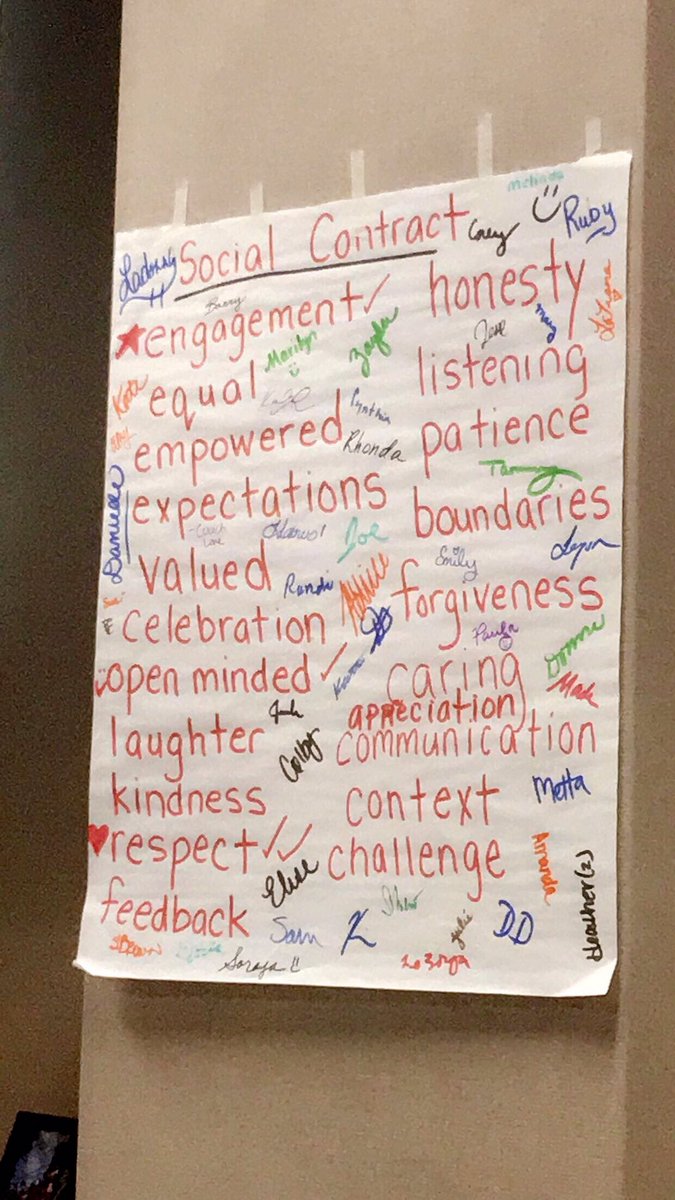 Melinda
Social Contract
Corey
Ruby
Barry
engagement✓
honesty
Marilyn
Zayla
Jose
equal
listening
Kate
Cynthia
empowered
Rhonda
patience
Danielle
expectations
boundaries
Coach
Love
Zoe
valued
Randi
Emily
Lynn
celebration
forgiveness
Paula
Donna
open minded✓
caring
Mark
appreciation
laughter
Colby
communication
kindness
context
Metta
respect✓✓
Elise
challenge
Amanda
Heather(2)
feedback
Sam
K
Julie
DD
Soraya